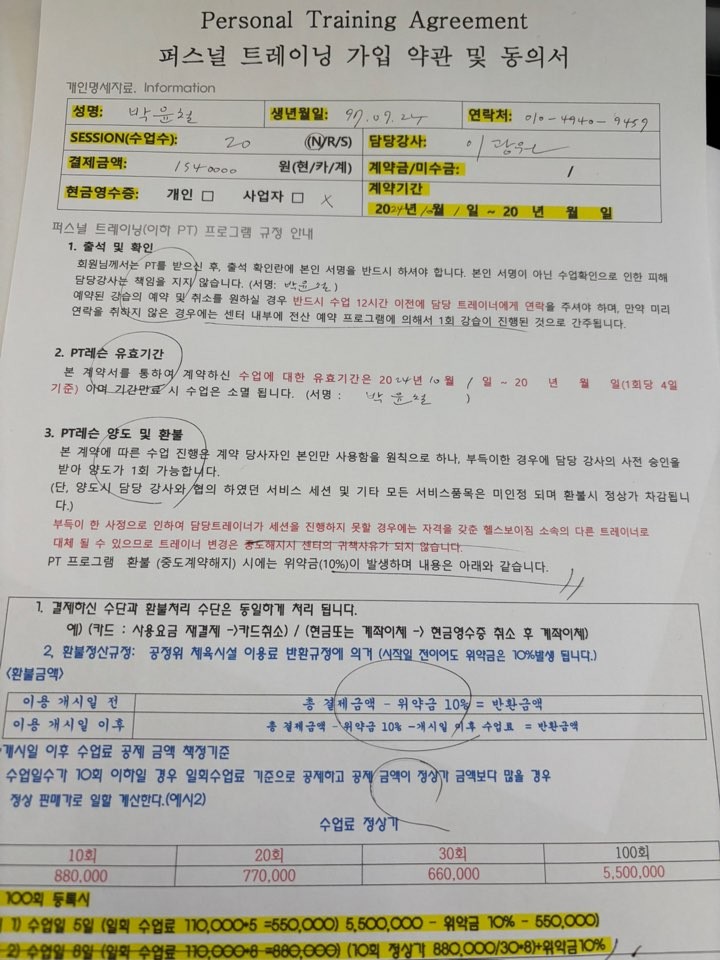 Personal Training Agreement
퍼스널 트레이닝 가입 약관 및 동의서
개인명세자료. Information
성명: 박윤철 생년월일: 97.07.24 연락처: 010-4940-9459
SESSION(수업수): 20 (N/R/S) 담당강사: 이광원
결제금액: 1540000 원(현/카/계) 계약금/미수금: /
현금영수증: 개인 □ 사업자 □ X 계약기간
2024년 10월 1일 ~ 20 년 월 일
퍼스널 트레이닝(이하 PT) 프로그램 규정 안내
1. 출석 및 확인
회원님께서는 PT를 받으신 후, 출석 확인란에 본인 서명을 반드시 하셔야 합니다. 본인 서명이 아닌 수업확인으로 인한 피해
담당강사는 책임을 지지 않습니다. (서명: 박윤철)
예약된 강습의 예약 및 취소를 원하실 경우 반드시 수업 12시간 이전에 담당 트레이너에게 연락을 주셔야 하며, 만약 미리
연락을 취하지 않은 경우에는 센터 내부에 전산 예약 프로그램에 의해서 1회 강습이 진행된 것으로 간주됩니다.
2. PT레슨 유효기간
본 계약서를 통하여 계약하신 수업에 대한 유효기간은 2024년 10월 1일 ~ 20 년 월 일(1회당 4일
기준) 이며 기간만료 시 수업은 소멸 됩니다. (서명 : 박윤철 )
3. PT레슨 양도 및 환불
본 계약에 따른 수업 진행은 계약 당사자인 본인만 사용함을 원칙으로 하나, 부득이한 경우에 담당 강사의 사전 승인을
받아 양도가 1회 가능합니다.
(단, 양도시 담당 강사와 협의 하였던 서비스 세션 및 기타 모든 서비스품목은 미인정 되며 환불시 정상가 차감됩니
다.)
부득이 한 사정으로 인하여 담당트레이너가 세션을 진행하지 못할 경우에는 자격을 갖춘 헬스보이짐 소속의 다른 트레이너로
대체 될 수 있으므로 트레이너 변경은 중도해지시 센터의 귀책사유가 되지 않습니다.
PT 프로그램 환불 (중도계약해지) 시에는 위약금(10%)이 발생하며 내용은 아래와 같습니다.
1. 결제하신 수단과 환불처리 수단은 동일하게 처리 됩니다.
예) (카드 : 사용요금 재결제 ->카드취소) / (현금또는 계좌이체 -> 현금영수증 취소 후 계좌이체)
2, 환불정산규정: 공정위 체육시설 이용료 반환규정에 의거 (시작일 전이어도 위약금은 10%발생 됩니다.)
<환불금액>
이용 개시일 전 총 결제금액 - 위약금 10% = 반환금액
이용 개시일 이후 총 결제금액 - 위약금 10% -개시일 이후 수업료 = 반환금액
개시일 이후 수업료 공제 금액 책정기준
수업일수가 10회 이하일 경우 일회수업료 기준으로 공제하고 공제 금액이 정상가 금액보다 많을 경우
정상 판매가로 일할 계산한다.(예시2)
수업료 정상가
10회 20회 30회 100회
880,000 770,000 660,000 5,500,000
100회 등록시
1) 수업일 5일 (일회 수업료 110,000*5 =550,000) 5,500,000 - 위약금 10% - 550,000)
2) 수업일 8일 (일회 수업료 110,000*8 =880,000) (10회 정상가 880,000/30*8)+위약금10%